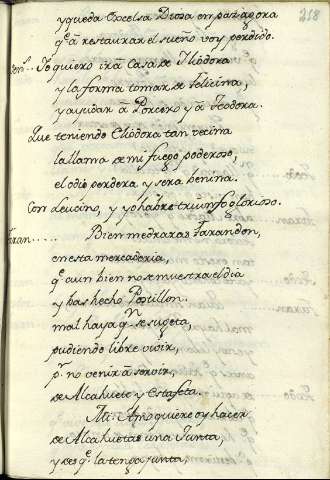 218
y queda Excelsa Diosa en paz agora
q̃ a restaurar el sueño voy perdido.
Yo quiero ir a Casa de Eliodora
y la forma tomar de Felicina,
y ayudar a Porcero y a Teodora.
Que teniendo Eliodora tan vecina
la llama de mi fuego poderoso,
el odio perdera y sera benina.
Con Leucino, y yo habre triunfo glorioso.
Faran..... Bien medraras Farandon,
en esta mercaderia,
q̃ aun bien no se muestra el dia
y has hecho Postillon.
mal haya qn se sugeta,
pudiendo libre vivir,
pr. no venir a servir,
de Alcahuete y estafeta.
Mi Amo quiere oy hacer
de Alcahuetas una Junta,
y de q̃ la tenga junta,